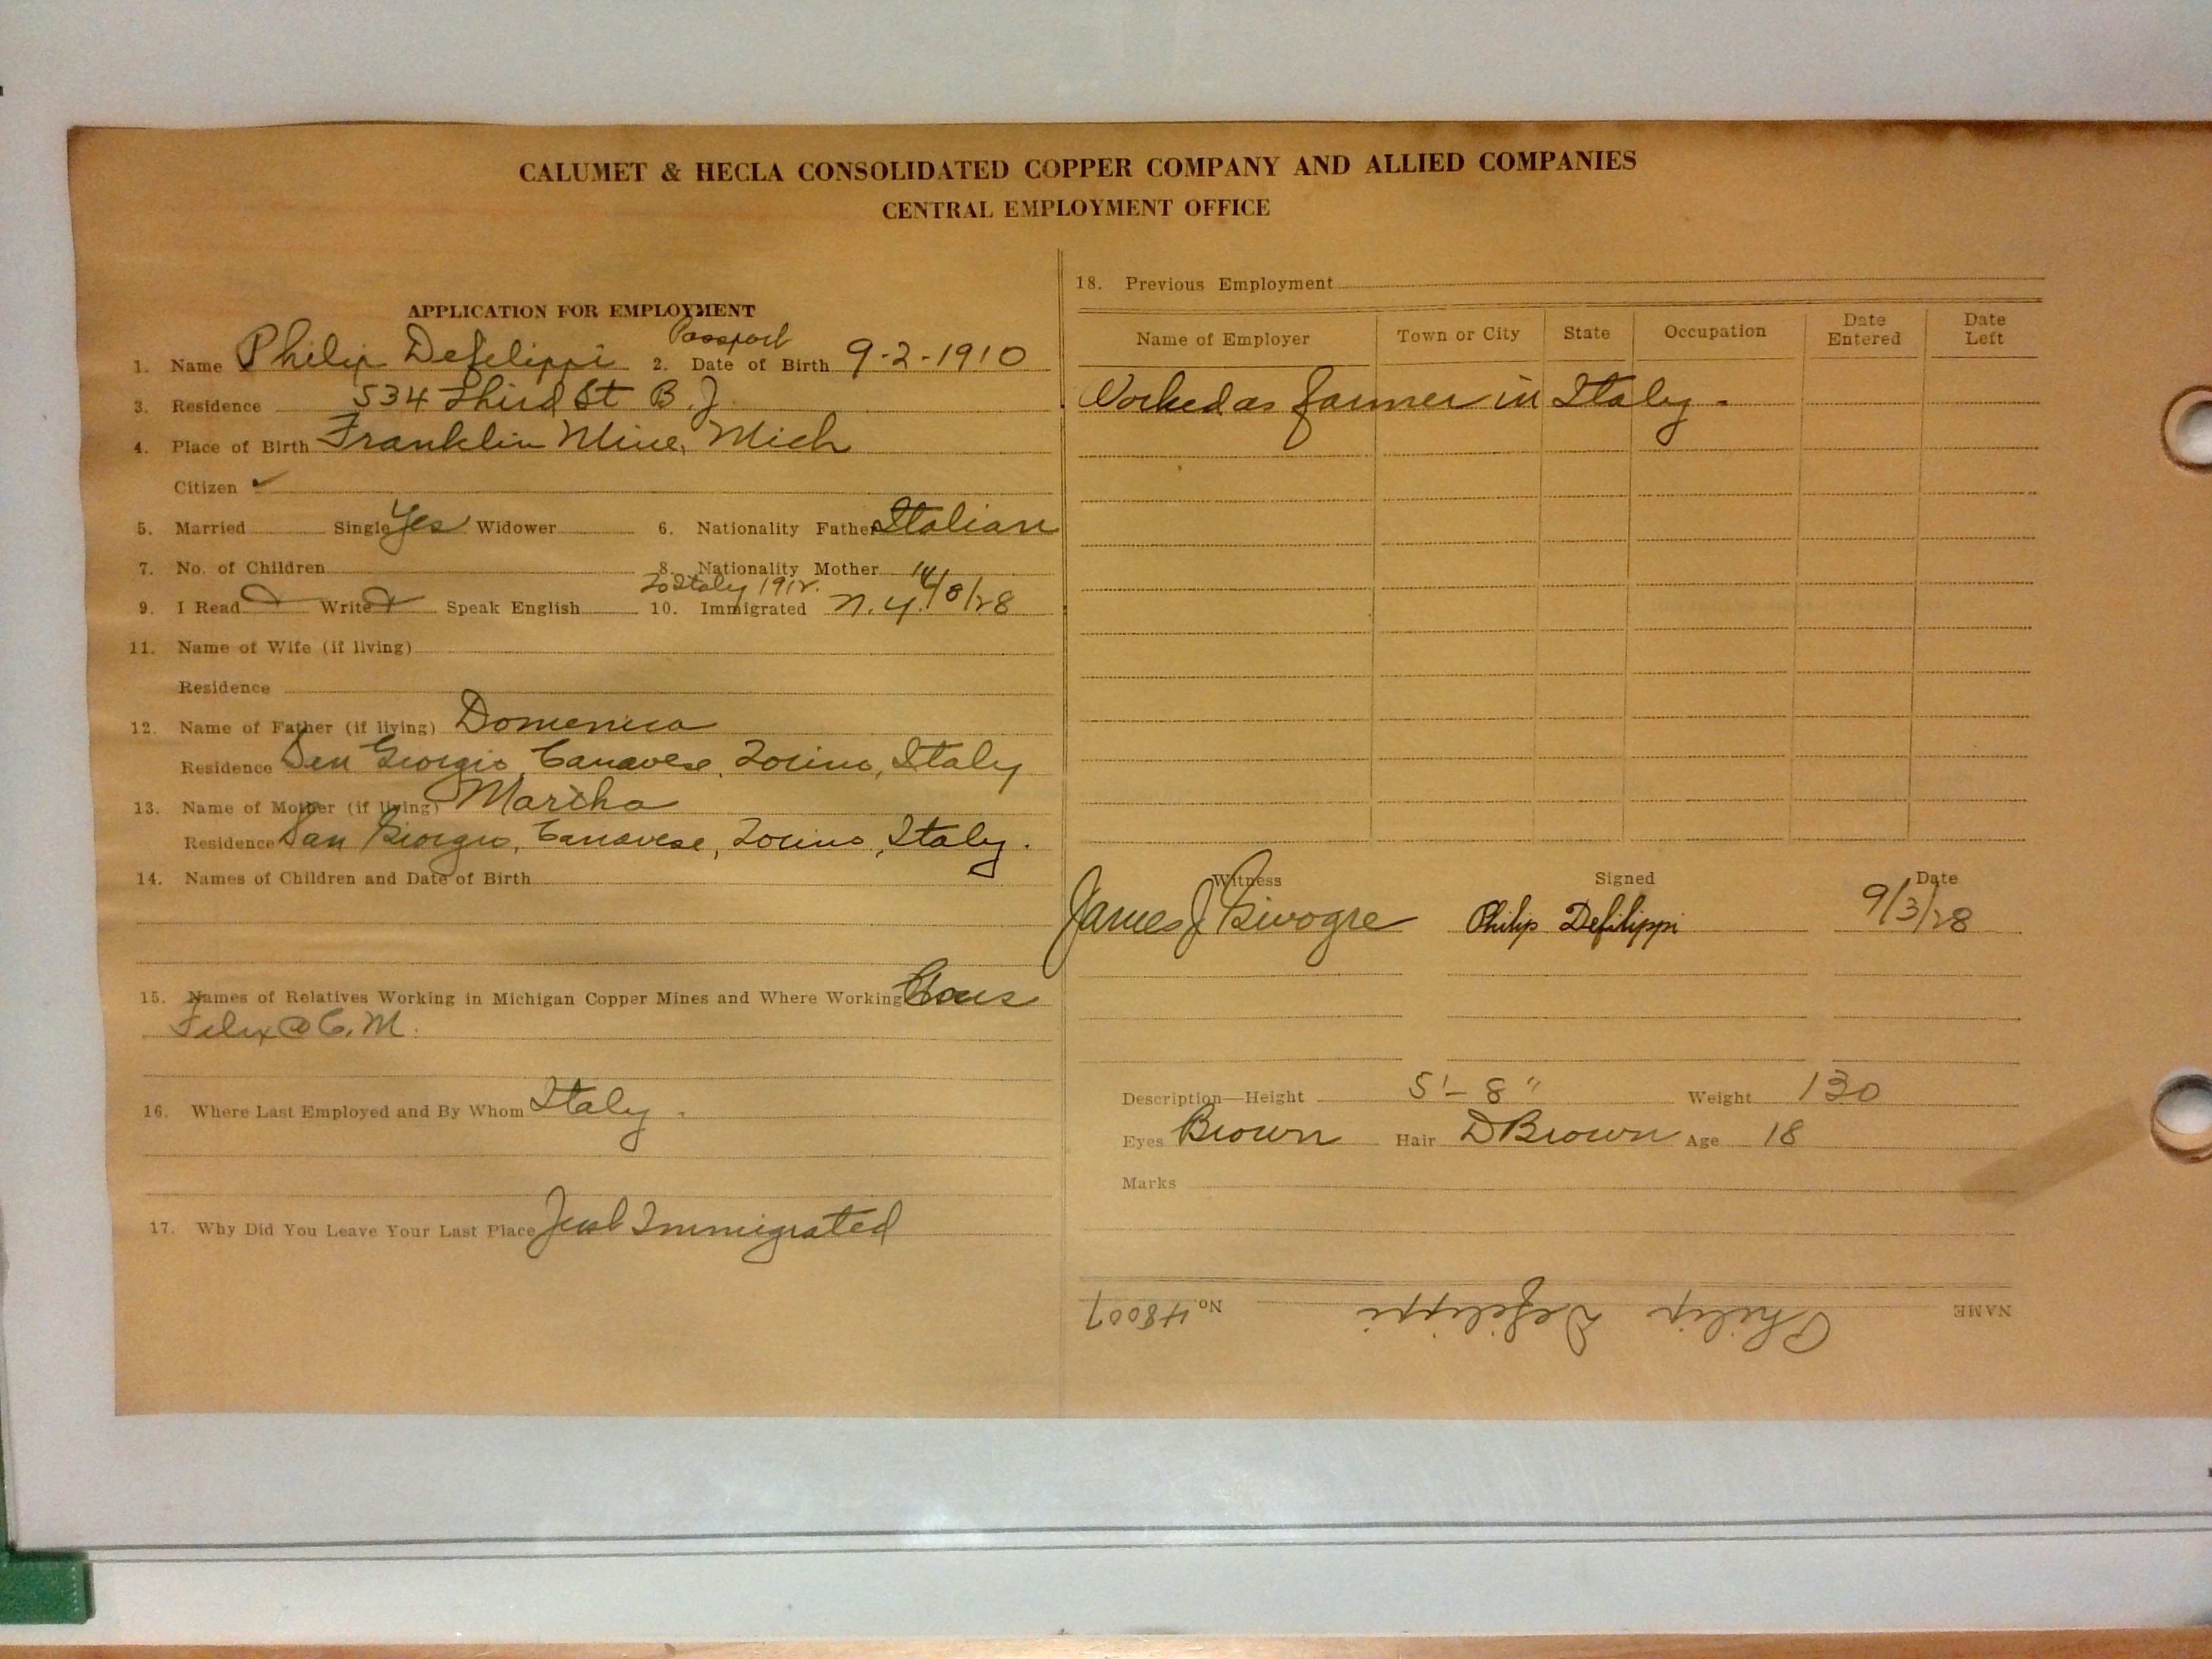 CALUMET & HECLA CONSOLIDATED COPPER COMPANY AND ALLIED COMPANIES
CENTRAL EMPLOYMENT OFFICE
APPLICATION FOR EMPLOYMENT
Passport
1. Name Philip Defilippi 2. Date of Birth 9-2-1910
3. Residence 534 Third St B. J.
4. Place of Birth Franklin Mine, Mich
Citizen ✓
5. Married Single Yes Widower 6. Nationality Father Italian
7. No. of Children 8. Nationality Mother "
To Italy 1912.
9. I Read Write Speak English 10. Immigrated N.Y. /8/28
11. Name of Wife (if living)
Residence
12. Name of Father (if living) Domenico
Residence San Giorgio, Canavese, Torino, Italy
13. Name of Mother (if living) Martha
Residence San Giorgio, Canavese, Torino, Italy.
14. Names of Children and Date of Birth
15. Names of Relatives Working in Michigan Copper Mines and Where Working
Felix @ C. M.
16. Where Last Employed and By Whom Italy.
17. Why Did You Leave Your Last Place Just Immigrated
18. Previous Employment
Name of Employer Town or City State Occupation Date Entered Date Left
Worked as farmer in Italy.
Witness Signed Date
James J. Philip Defilippi 9/3/28
Description—Height 5'-8" Weight 130
Eyes Brown Hair D Brown Age 18
Marks
NAME Philip Defilippi No. 48007